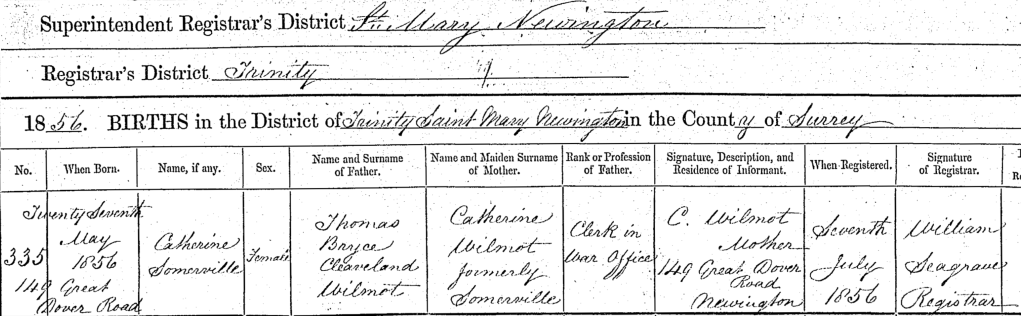 Superintendent Registrar's District St. Mary Newington
Registrar's District Trinity
1856. BIRTHS in the District of Trinity Saint Mary Newington in the County of Surrey
No. When Born. Name, if any. Sex. Name and Surname of Father. Name and Maiden Surname of Mother. Rank or Profession of Father. Signature, Description, and Residence of Informant. When Registered. Signature of Registrar.
335
Twenty Seventh
May
1856
149 Great
Dover Road
Catherine
Somerville
Female
Thomas
Bryce
Cleaveland
Wilmot
Catherine
Wilmot
formerly
Somerville
Clerk in
War Office
C. Wilmot
Mother
149 Great Dover
Road
Newington
Seventh
July
1856
William
Seagrave
Registrar